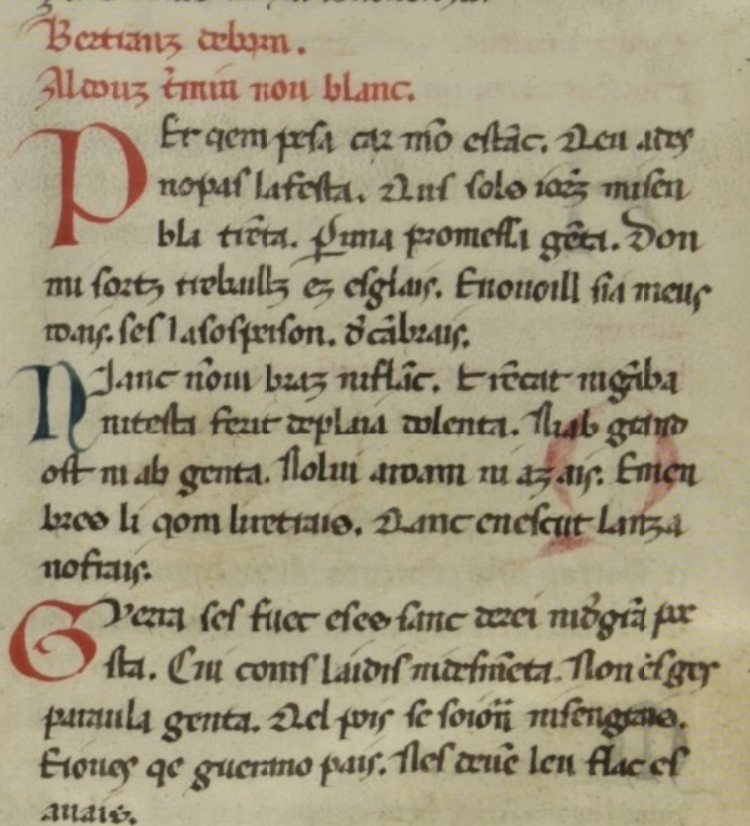 Bertranz deborn.
Al douz termini nou blanc.
PEr qem pesa car mō estāc. Qeu ades
nopas lafesta. Qus solo iorz misen
bla trēta. Per una promessa gēta. Don
mi sortz trebaillz ez esglais. Enouoill sia meus
roais. ses lasospeison. d'cābrais.
NJanc nom braz niflāc. trēcat nigāba
nitesta ferit deplaia dolenta. Niab grand
ost ni ab genta. Nolui aroam ni azais. Emen
breo li qom liretrais. Qanc enescut lanza
nofrais.
GVerra ses fuec eseo sanc derei nid'grā pe
sta. Cui coms laidis nidesmēta. Non ēs ges
paraula genta. Qel pois se soiorn nisengrais.
Eioues qe guerano pais. Nes deuē leu flac es
auais.